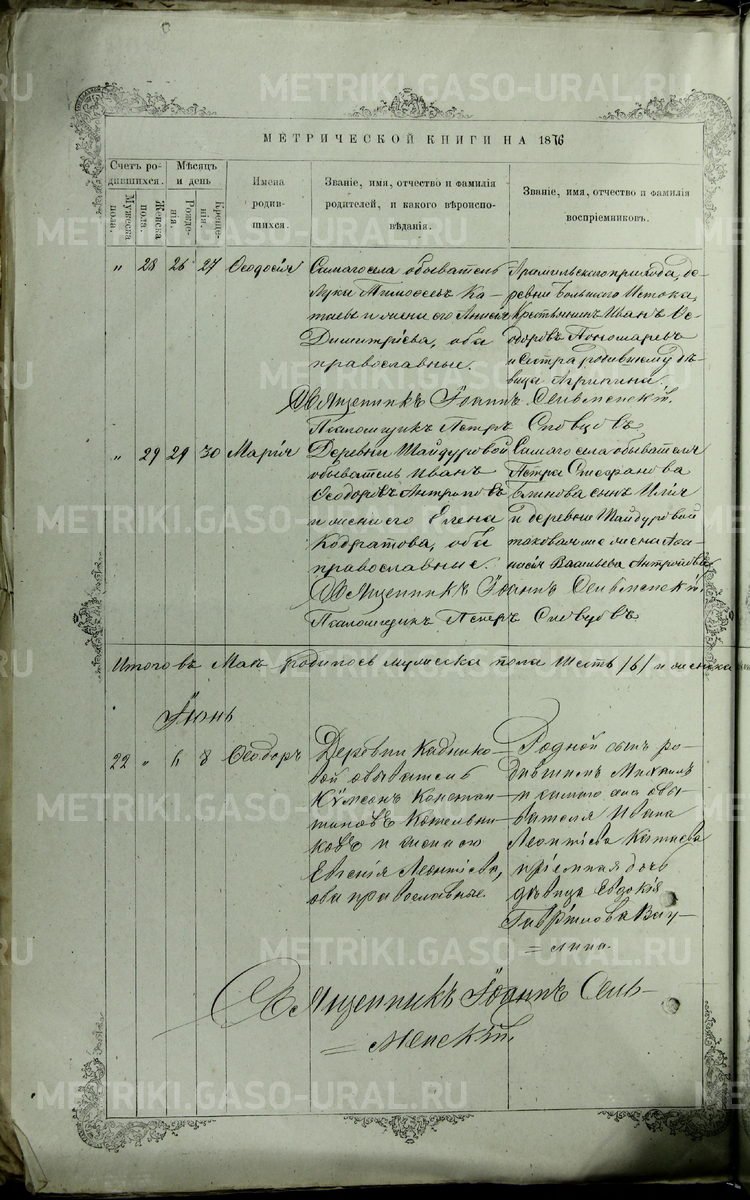 МЕТРИЧЕСКОЙ КНИГИ НА 1876
Счетъ ро-
дившихся.
Мужеска
пола.
Женска
пола.
Мѣсяцъ
и день
Рожде-
нія.
Креще-
нія.
Имена
родив-
шихся.
Званіе, имя, отчество и фамилія
родителей, и какого вѣроиспо-
вѣданія.
Званіе, имя, отчество и фамилія
воспріемниковъ.
„ 28 26 27 Ѳеодосія
Самаго села обыватель
Лука Тимоѳеевъ Ка-
таевъ и жена его Анисія
Димитріева, оба
православные.
Арамильскаго прихода, де-
ревни Большаго Истока,
Крестьянинъ Иванъ Ѳе-
одоровъ Пономаревъ
и сестра родившему дѣ-
вица Агрипина.
Священникъ Іоаннъ
Псаломщикъ Петръ
„ 29 29 30 Марія
Деревни Шайдуровой
обыватель Иванъ
Ѳеодоровъ Антроповъ
и жена его Елена
Кодратова, оба
православные.
Самаго села обывателя
Петра Стефанова
Блинова сынъ Илія
и деревни Шайдуровой
таковая же жена
Васильева Антропова
Священникъ Іоаннъ
Псаломщикъ Петръ
Итого въ Маѣ родилось мужеска пола шесть /6/ и женска
Іюнь
22 „ 6 8 Ѳеодоръ
Деревни Каднико-
вой обыватель
Констан-
тиновъ Кожевни-
ковъ и жена его
Евгенія Леонтіева,
оба православные.
Родной сынъ ро-
дившихъ Михаилъ
и самаго села обы-
вателя Ивана
Леонтіева Катаева
пріемная дочь
дѣвица Евдокія
Гавріилова Вау-
лина.
Священникъ Іоаннъ Сель-
менскій.
METRIKI.GASO-URAL.RU